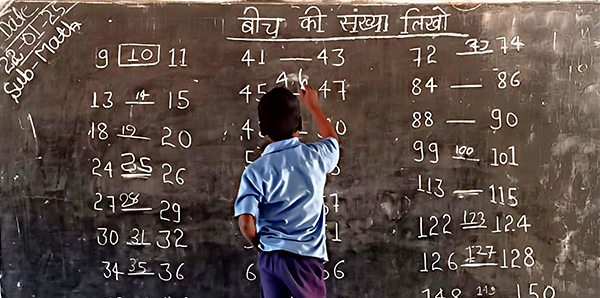 Date
22-01-25
Sub-Math
बीच की संख्या लिखो
9 10 11
13 14 15
18 19 20
24 35 26
27 28 29
30 31 32
34 35 36
41 — 43
45 46 47
72 74
84 — 86
88 — 90
99 100 101
113 — 115
122 123 124
126 127 128
148 150